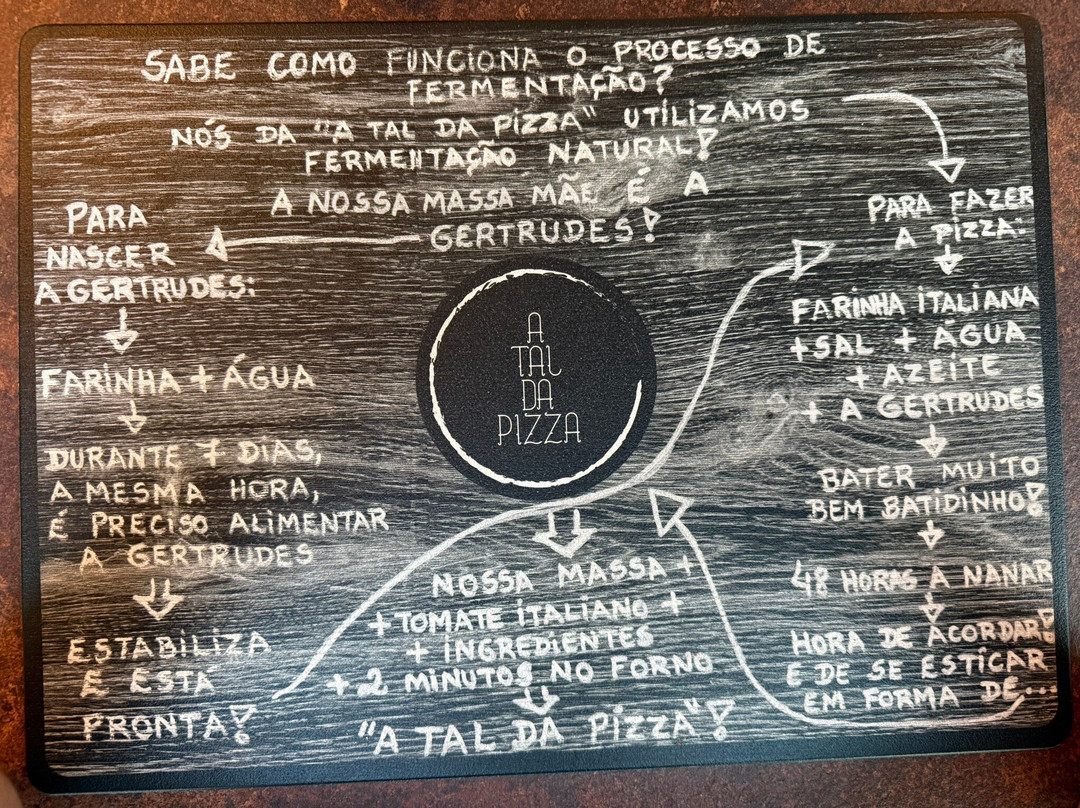 SABE COMO FUNCIONA O PROCESSO DE
FERMENTAÇÃO?
NÓS DA "A TAL DA PIZZA" UTILIZAMOS
FERMENTAÇÃO NATURAL!
A NOSSA MASSA MÃE É A
GERTRUDES!
PARA
NASCER
A GERTRUDES:
FARINHA + ÁGUA
DURANTE 7 DIAS,
A MESMA HORA,
É PRECISO ALIMENTAR
A GERTRUDES
ESTABILIZA
E ESTÁ
PRONTA!
PARA FAZER
A PIZZA:
FARINHA ITALIANA
+SAL + ÁGUA
+ AZEITE
+ A GERTRUDES
BATER MUITO
BEM BATIDINHO!
48 HORAS A NANAR
HORA DE ACORDAR!
E DE SE ESTICAR
EM FORMA DE...
A
TAL
DA
PIZZA
NOSSA MASSA +
+ TOMATE ITALIANO +
+ INGREDIENTES
+ 2 MINUTOS NO FORNO
"A TAL DA PIZZA"!